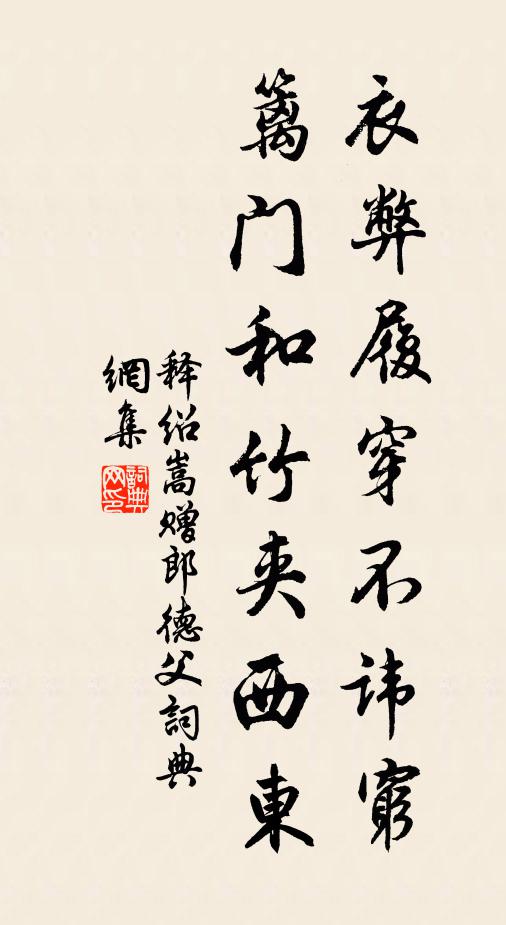 衣弊履穿不讳窮
篱门和竹夹西東
释绍嵩赠郎德父詞典
網集
詞典网印